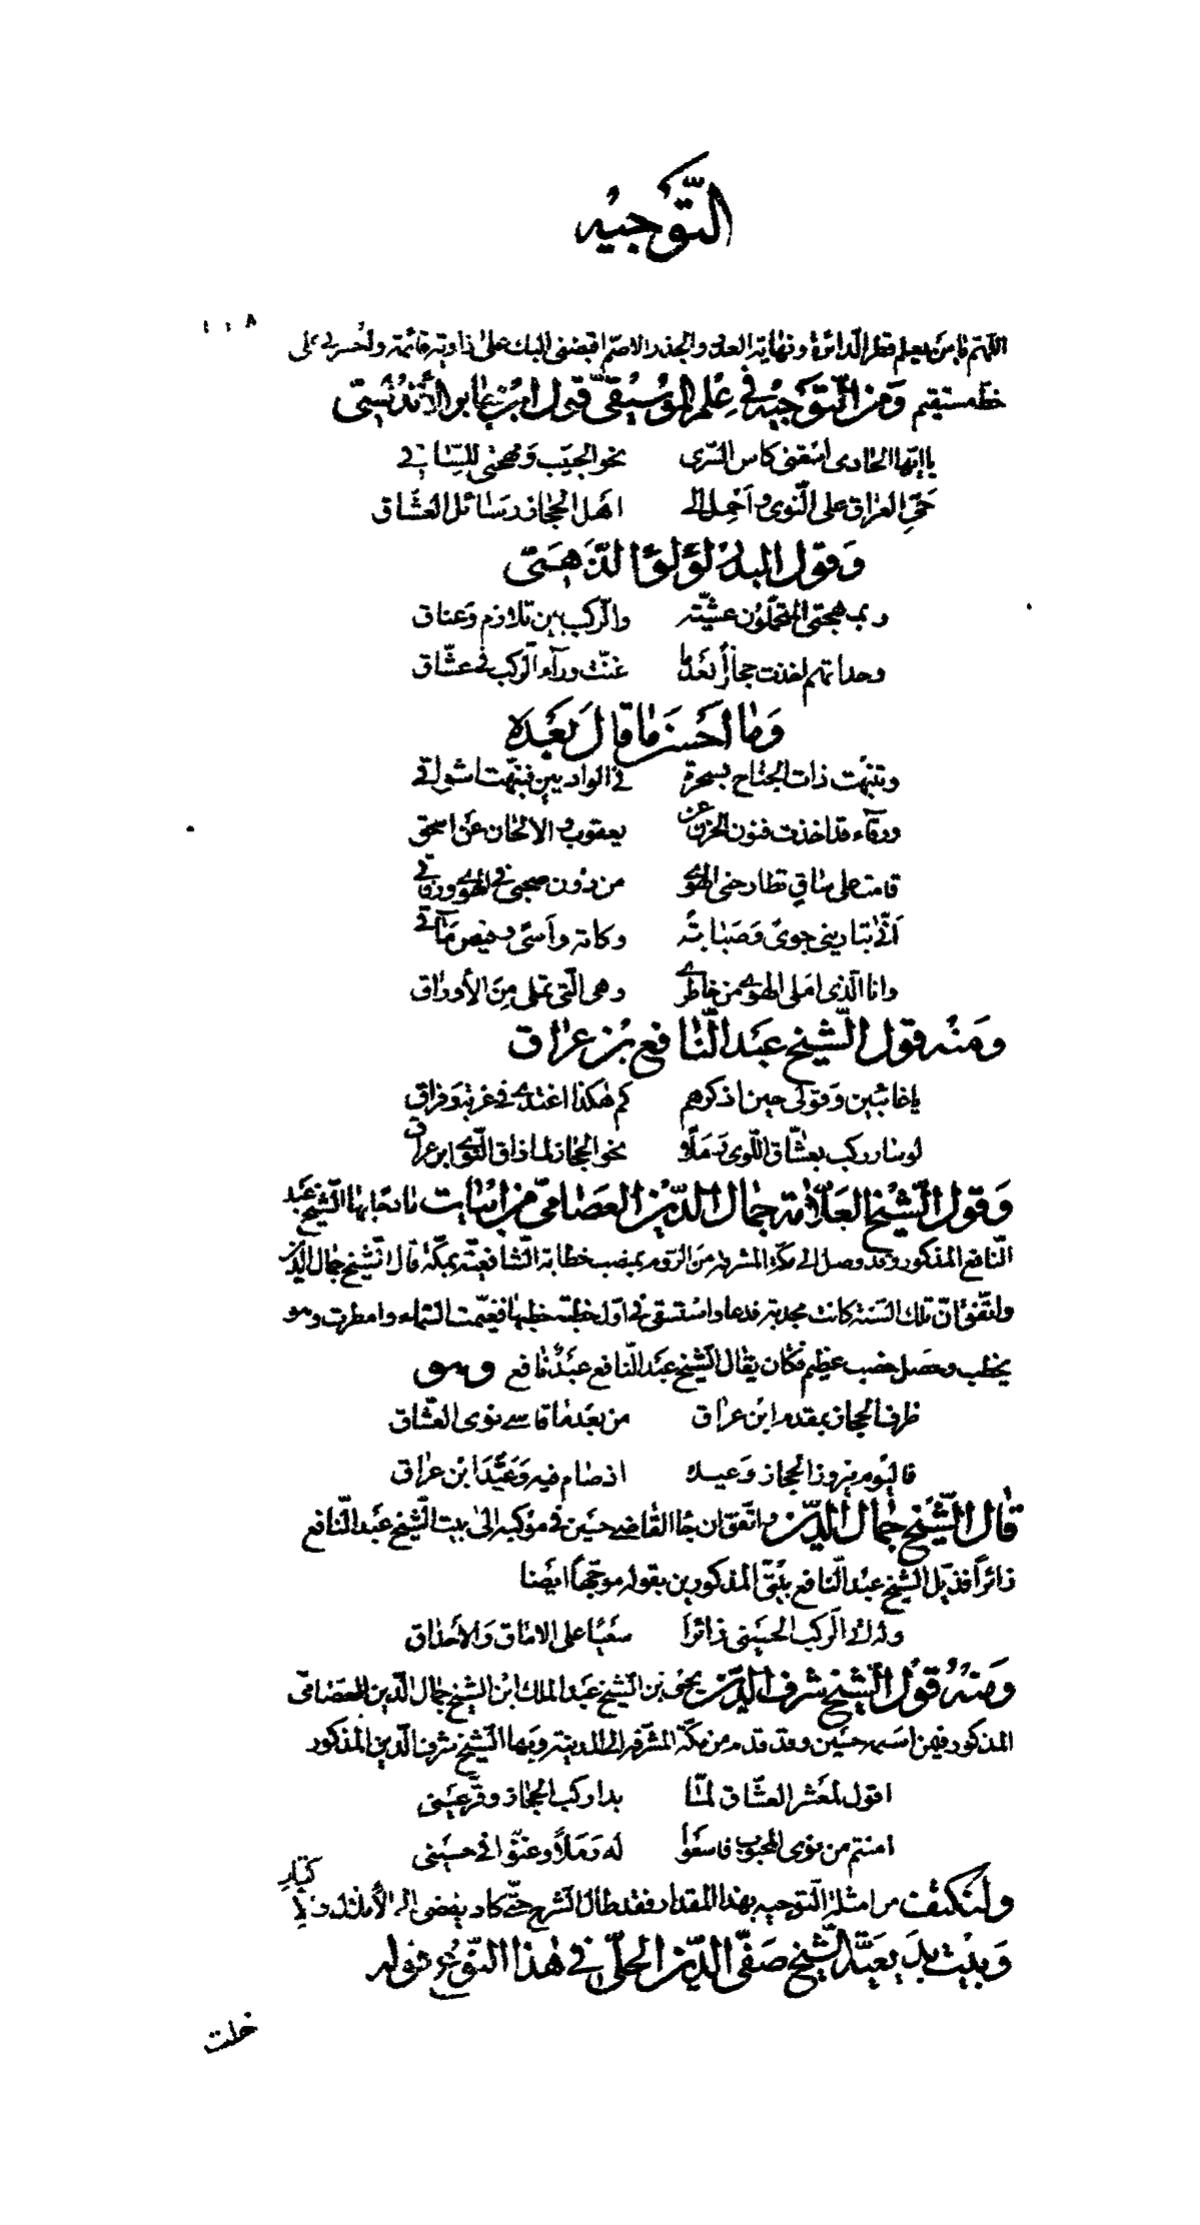 التوجيه
١٠٨
اللهم يا من يعلم قطر الدائرة ونهاية العدد والجذر الاصم اقبضني اليك على زاوية قائمة واحشرني على
خط مستقيم ومن التوجيه في علم الموسيقى قول ابن جابر الأندلسي
يا ايها الحادى اسقني كاس السرى نحو الحبيب ومهجتي للساقي
حي العراق على النوى واحمل الى اهل الحجاز رسائل العشاق
وقول البدر لؤلؤ الذهبي
وبمهجتي المتحملون عشية والركب بين تلازم وعناق
وحداتهم اخذت حجازا بعدما غنت ورآء الركب في عشاق
وما احسن ما قال بعده
وتنبهت ذات الجناح بسحرة في الواديين فنبهت اشواقي
ورقآء قد اخذت فنون الحزن عن يعقوب والالحان عن اسحق
قامت على ساق تطارحني الهوى من دون صحبي في الهوى ورفاقي
أنى تباريني جوى وصبابة وكآبة واسى وفيض مآقي
وانا الذى املى الهوى من خاطري وهى التي تملى من الأوراق
ومنه قول الشيخ عبد النافع بن عراق
يا غائبين وقولى حين اذكرهم كم هكذا اغتدى في غربة وفراق
لو سار ركب بعشاق اللوى رملا نحو الحجاز لما ذاق النوى ابن عراق
وقول الشيخ العلامة جمال الدين العصامي من ابيات مادحا بها الشيخ عبد
النافع المذكور وقد وصل الى مكة المشرفة من الروم بمنصب خطابة الشافعية بمكة قال الشيخ جمال الدين
واتفق ان تلك السنة كانت مجدبة فدعا واستسقى في اول خطبة خطبها فغيمت السماء وامطرت وهو
يخطب وحصل خصب عظيم فكان يقال الشيخ عبد النافع عبد نافع وهو
طرف الحجاز بمقدم ابن عراق من بعد ما قاسى نوى العشاق
فاليوم نيروز الحجاز وعيده اذ صام فيه وعيدا ابن عراق
قال الشيخ جمال الدين واتفق ان جا القاضي حسين في موكبه الى بيت الشيخ عبد النافع
زائرا فذيل الشيخ عبد النافع بيتي المذكورين بقوله موجها ايضا
وكذلك الركب الحسيني زائرا سعيا على الاماق والأحداق
ومنه قول الشيخ شرف الدين يحيى بن الشيخ عبد الملك ابن الشيخ جمال الدين العصامي
المذكور فيمن اسمه حسين وقد قدم من مكة المشرفة الى المدينة وبها الشيخ شرف الدين المذكور
اقول لمعشر العشاق لما بدا ركب الحجاز وقر عيني
امنتم من نوى المحبوب فاسعوا له رملا وغنوا في حسيني
ولنكتف من امثلة التوجيه بهذا المقدار فقد طال الشرح حتى كاد يفضى الى الأملال
وبيت بديعية الشيخ صفي الدين الحلي في هذا النوع قوله
خلت